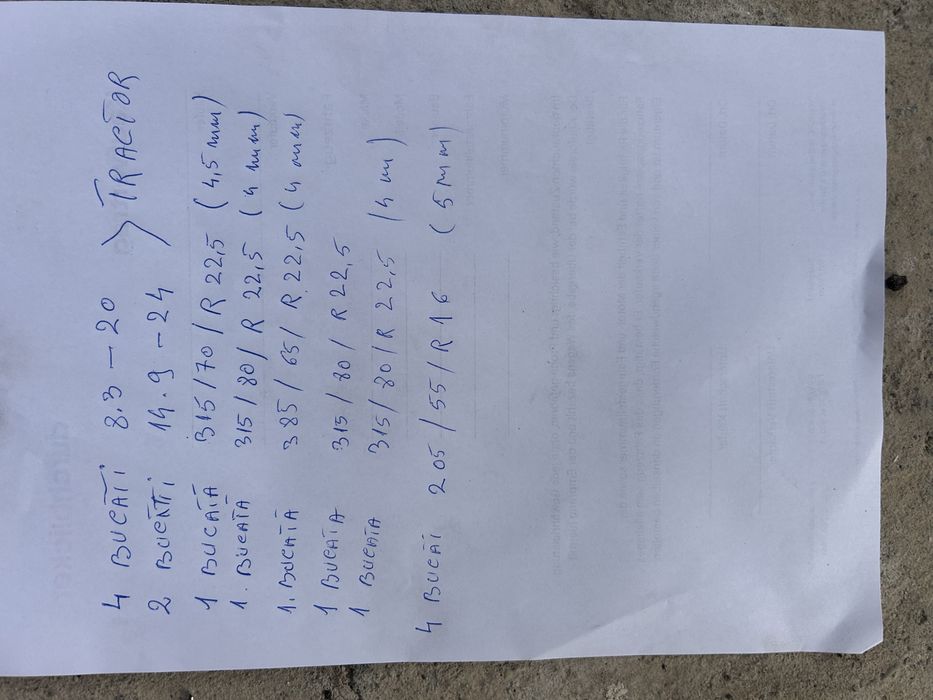 4 BUCATI 8.3 - 20 > TRACTOR
2 BUCATTI 14.9 - 24
1 BUCATA 315/70/R 22,5 (4,5 mm)
1. BUCATA 315/80/R 22,5 (4 mm)
1. BUCATA 385/65/R 22,5 (4 mm)
1 BUCATA 315/80/R22,5
1 BUCATA 315/80/R 22.5 (4 m)
4 BUCAI 205/55/R16 (5mm)